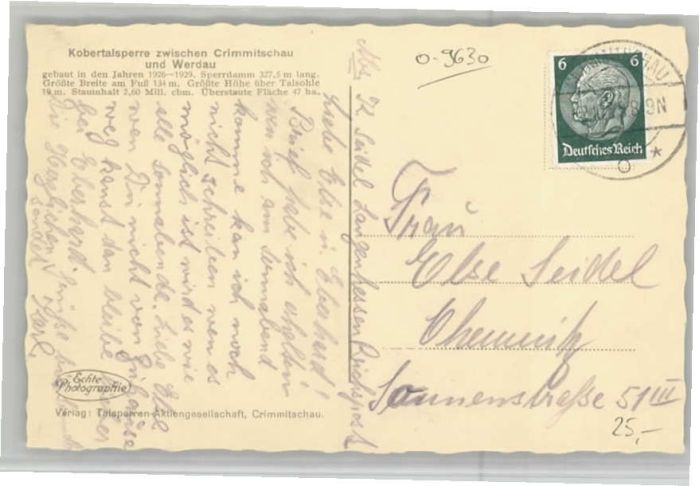 Kobertalsperre zwischen Crimmitschau
und Werdau
gebaut in den Jahren 1926–1929. Sperrdamm 327,5 m lang.
Größte Breite am Fuß 134 m. Größte Höhe über Talsohle
m. Stauinhalt 2,60 Mill. cbm. Überstaute Fläche 47 ha.
o-9630
6 6
Deutsches Reich
9N
Liebe Else u Eberhard!
Brief habe ich erhalten
wen ich am Sonnabend
komme kan ich noch
nicht schreiben wen es
möglich ist wird es wie
alle Sonnabende. Liebe Else
wen Du nicht von zuhause
weg kanst dan bleibe
Eberhard. Grüße
Die Herzlichen
sendet Karl
Seidel Langenhessen Reichspost
Frau
Else Seidel
Chemnitz
Sonnenstraße 51 III
25,-
Echte
Photographie
Verlag: Talsperren-Aktiengesellschaft, Crimmitschau.